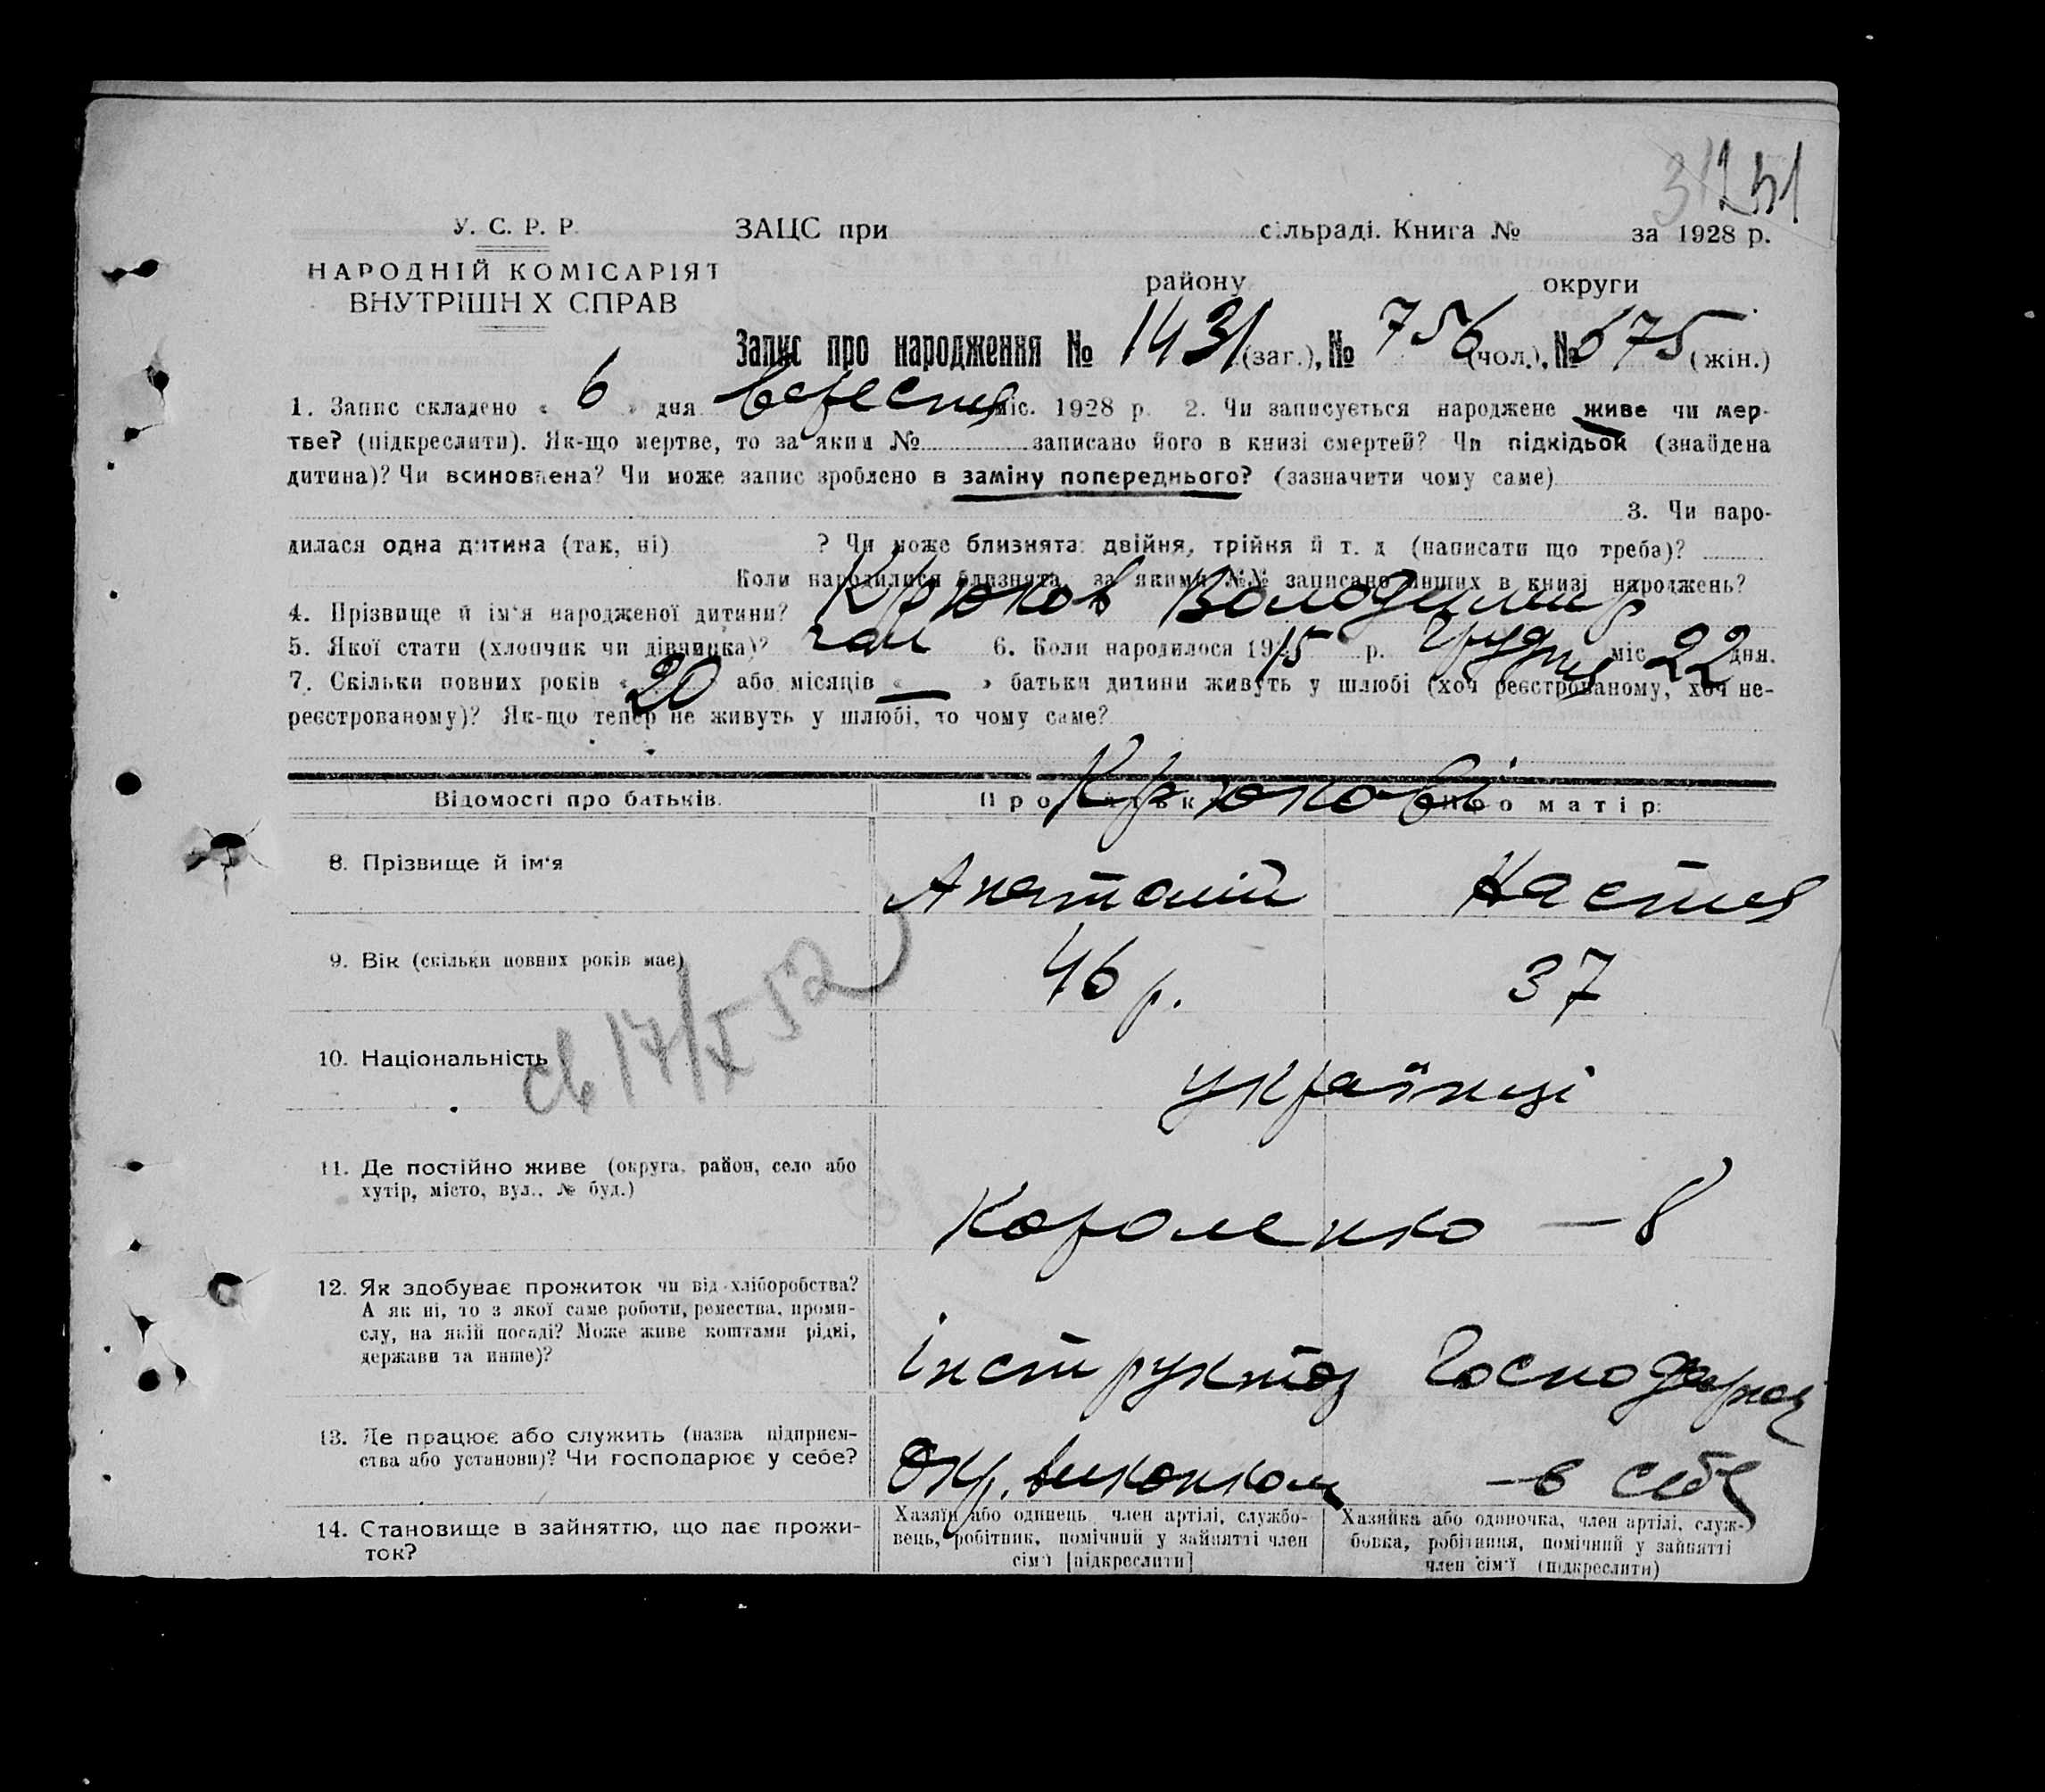 31151
У. С. Р. Р.
ЗАЦС при сільраді. Книга № за 1928 р.
НАРОДНІЙ КОМІСАРІЯТ
ВНУТРІШНІХ СПРАВ
району округи
Запис про народження № 1431 (заг.), № 756 (чол.), № 675 (жін.)
1. Запис складено « 6 » дня вересня міс. 1928 р. 2. Чи записується народжене живе чи мер-
тве? (підкреслити). Як-що мертве, то за яким № записано його в книзі смертей? Чи підкідьок (знайдена
дитина)? Чи всиновлена? Чи може запис зроблено в заміну попереднього? (зазначити чому саме)
3. Чи наро-
дилася одна дитина (так, ні) ? Чи може близнята: двійня, трійня й т. д. (написати що треба)?
Коли народилися близнята, за якими №№ записано инших в книзі народжень?
4. Прізвище й ім'я народженої дитини? Крюков Володимир
5. Якої стати (хлопчик чи дівчинка)? чол 6. Коли народилося 1915 р. Грудня міс 22 дня.
7. Скільки повних років « 20 » або місяців « — » батьки дитини живуть у шлюбі (хоч реєстрованому, хоч не-
реєстрованому)? Як-що тепер не живуть у шлюбі, то чому саме?
Відомості про батьків. Про батька Про матір:
Крюкови
8. Прізвище й ім'я Анатолій Настя
9. Вік (скільки повних років має) 46 р. 37
св 17/X 52
10. Національність українці
11. Де постійно живе (округа, район, село або
хутір, місто, вул., № буд.)
Короленко — 8
12. Як здобуває прожиток чи від хліборобства?
А як ні, то з якої саме роботи, ремества, проми-
слу, на якій посаді? Може живе коштами рідні,
держави та инше)?
інструктор Господарка
13. Де працює або служить (назва підприєм-
ства або установи)? Чи господарює у себе?
Окр. виконком — в себе
14. Становище в зайняттю, що дає прожи-
ток?
Хазяїн або одинець, член артілі, службо-
вець, робітник, помічний у зайнятті член
сім'ї [підкреслити]
Хазяйка або одиночка, член артілі, служ-
бовка, робітниця, помічний у зайнятті
член сім'ї (підкреслити)